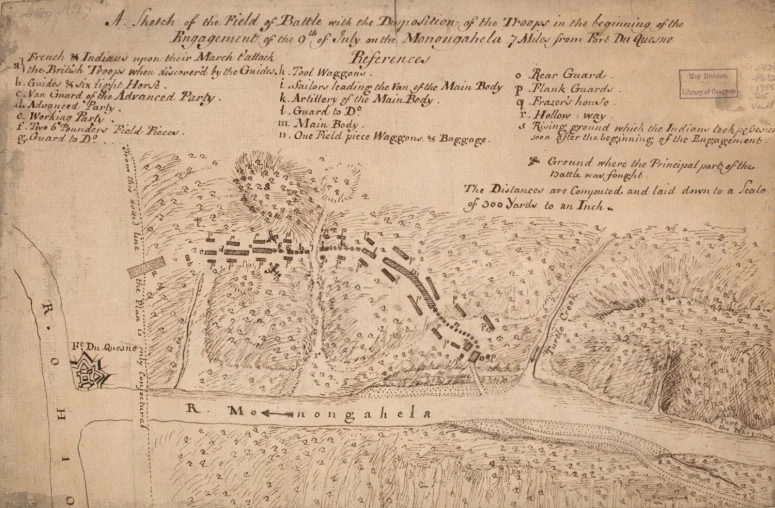 A Sketch of the Field of Battle with the Disposition of the Troops in the beginning of the
Engagement of the 9th of July on the Monongahela 7 Miles from Fort Du Quesne
References
a French & Indians upon their March t'attack
the British Troops when discover'd by the Guides.
b. Guides & six light Horse.
c. Van Guard of the Advanced Party.
d. Advanced Party.
e. Working Party.
f. Two 6 Pounders Field Pieces.
g. Guard to Do
h. Tool Waggons.
i. Sailors leading the Van of the Main Body
k. Artillery of the Main Body.
l. Guard to Do
m. Main Body.
n. One Field piece Waggons. & Baggage.
o Rear Guard.
p. Flank Guards.
q. Frazer's house.
r. Hollow way.
s Rising ground which the Indians took
soon after the beginning of the Engagement.
Ground where the Principal part of the
Battle was fought.
The Distances are Computed and laid down to a Scale
of 300 Yards to an Inch.
Map Division
Library of Congress
From this dotted line the Plan is only conjectured
Ft. Du Quesne
R. OHIO
R. Monongahela
Turtle Creek